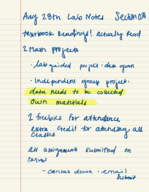 Aug 28th Lab Notes Section 0A
textbook readings! actually read
2 Main projects
- lab guided project - data given
- independent group project -
data needs to be collected
own materials
2 freebies for attendance
extra credit for attending all
classes
all assignments submitted on
canvas
- canvas down - email
submit